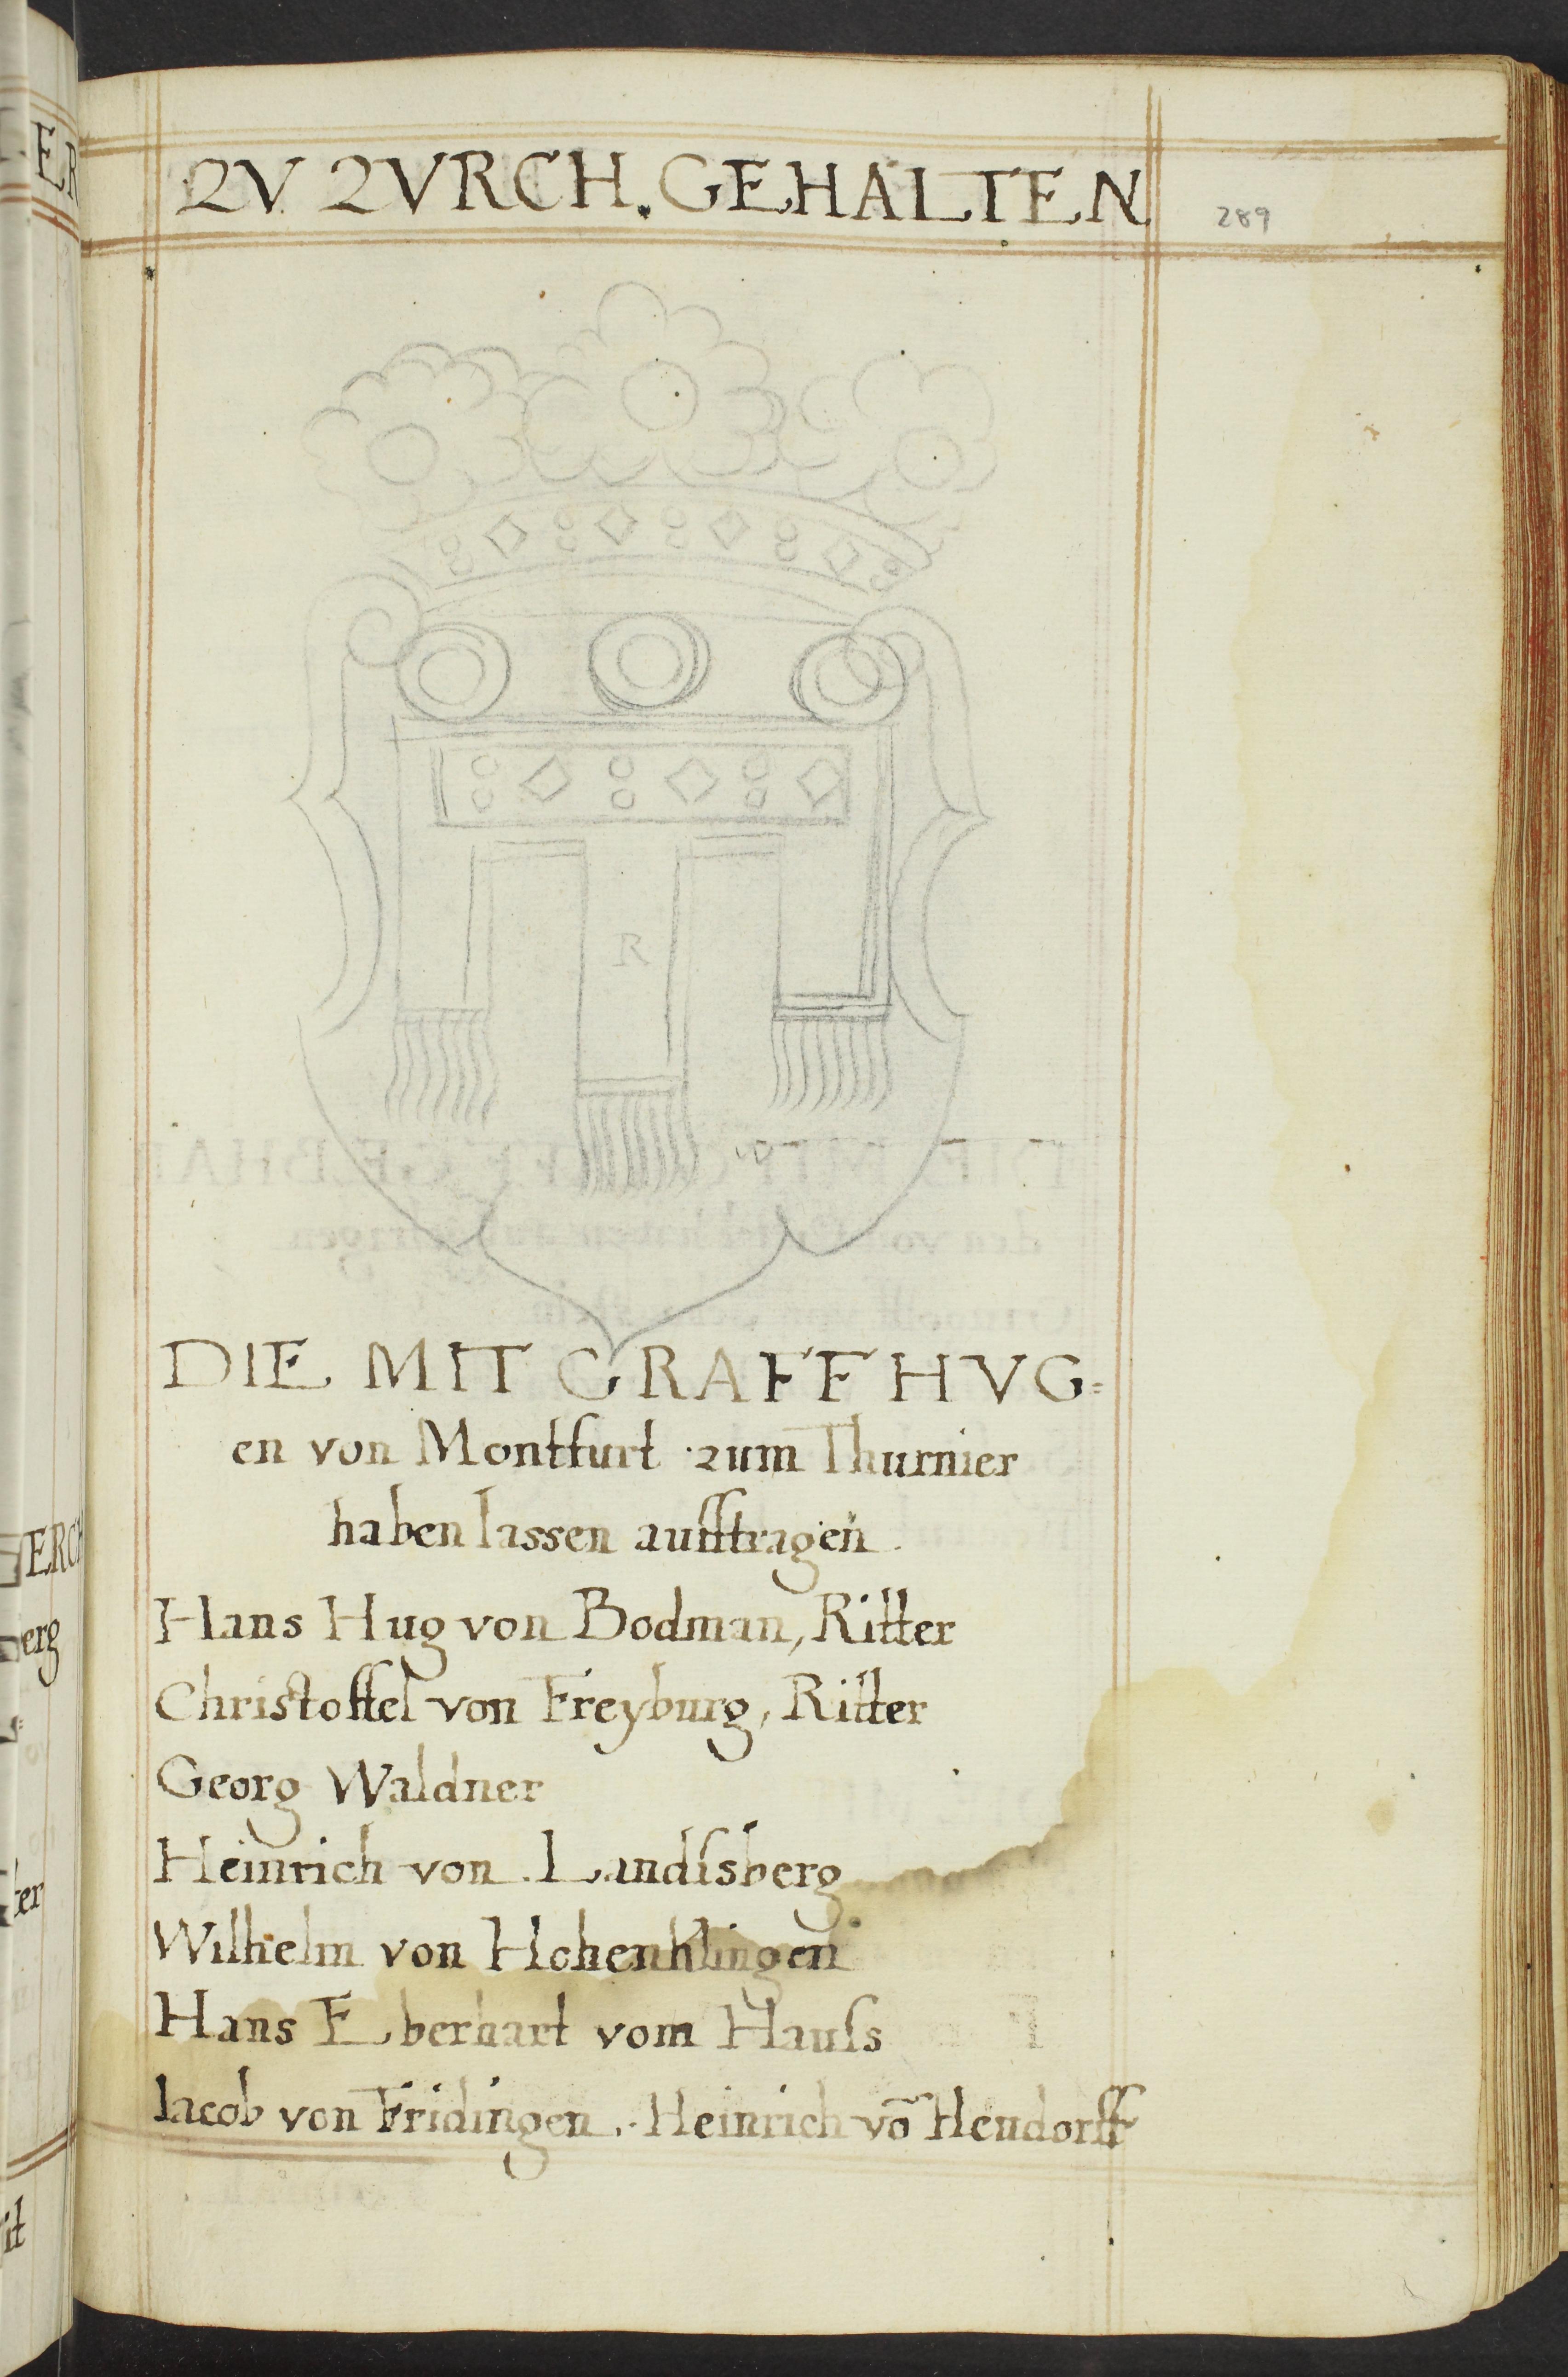 ZV ZVRCH. GEHALTEN
289
R
DIE MIT GRAFF HVG=
en von Montfurt zum Thurnier
haben lassen aufftragen.
Hans Hug von Bodman, Ritter
Christoffel von Freyburg, Ritter
Georg Waldner
Heinrich von Landſsberg
Wilhelm von Hohenklingen
Hans Eberhart vom Hauſs
Iacob von Fridingen. Heinrich võ Heudorff